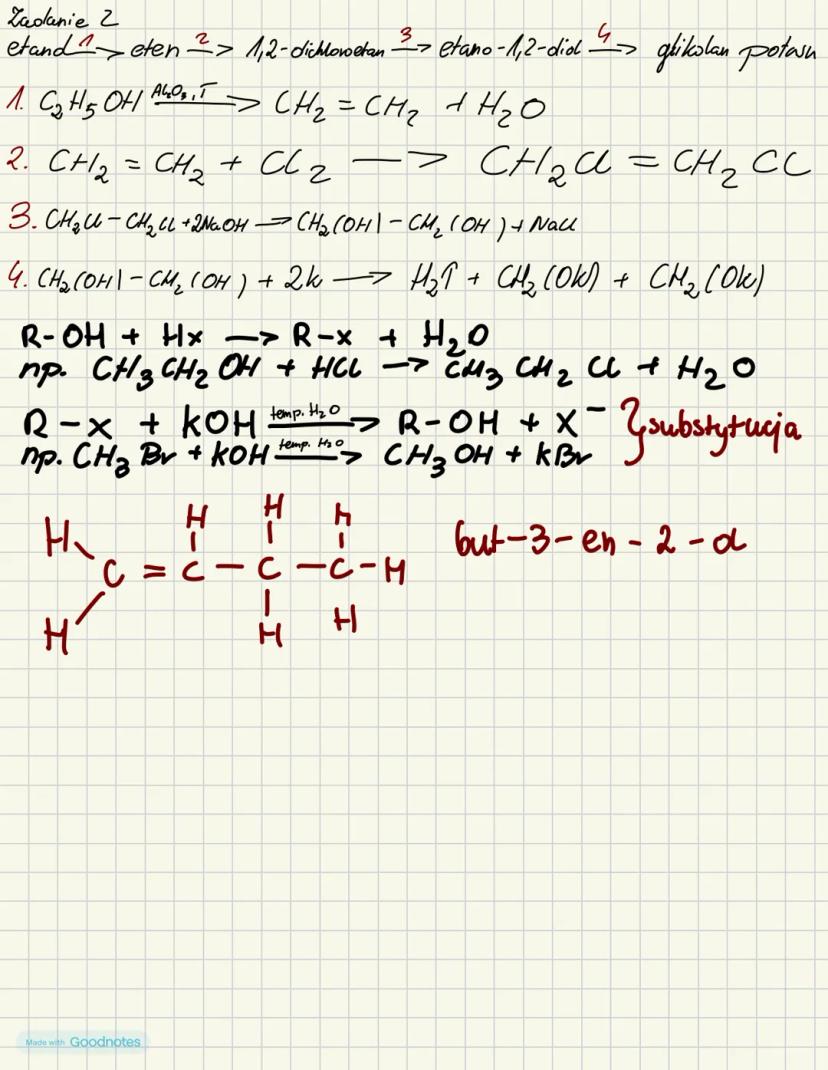 Zadanie 2
etanol 1→ eten 2→ 1,2-dichloroetan 3→ etano-1,2-diol 4→ glikolan potasu
1. C₂H₅OH Al₂O₃,T→ CH₂ = CH₂ + H₂O
2. CH₂ = CH₂ + Cl₂ → CH₂Cl = CH₂Cl
3. CH₂Cl - CH₂Cl + 2NaOH → CH₂(OH) - CH₂(OH) + NaCl
4. CH₂(OH) - CH₂(OH) + 2K → H₂↑ + CH₂(OK) + CH₂(OK)
R-OH + Hx → R-x + H₂O
np. CH₃CH₂OH + HCl → CH₃CH₂Cl + H₂O
R-x + KOH temp. H₂O→ R-OH + X⁻ } substytucja
np. CH₃Br + KOH temp. H₂O→ CH₃OH + KBr
H H H
H
C = C - C - C - H
H H H
but-3-en-2-ol
Made with Goodnotes